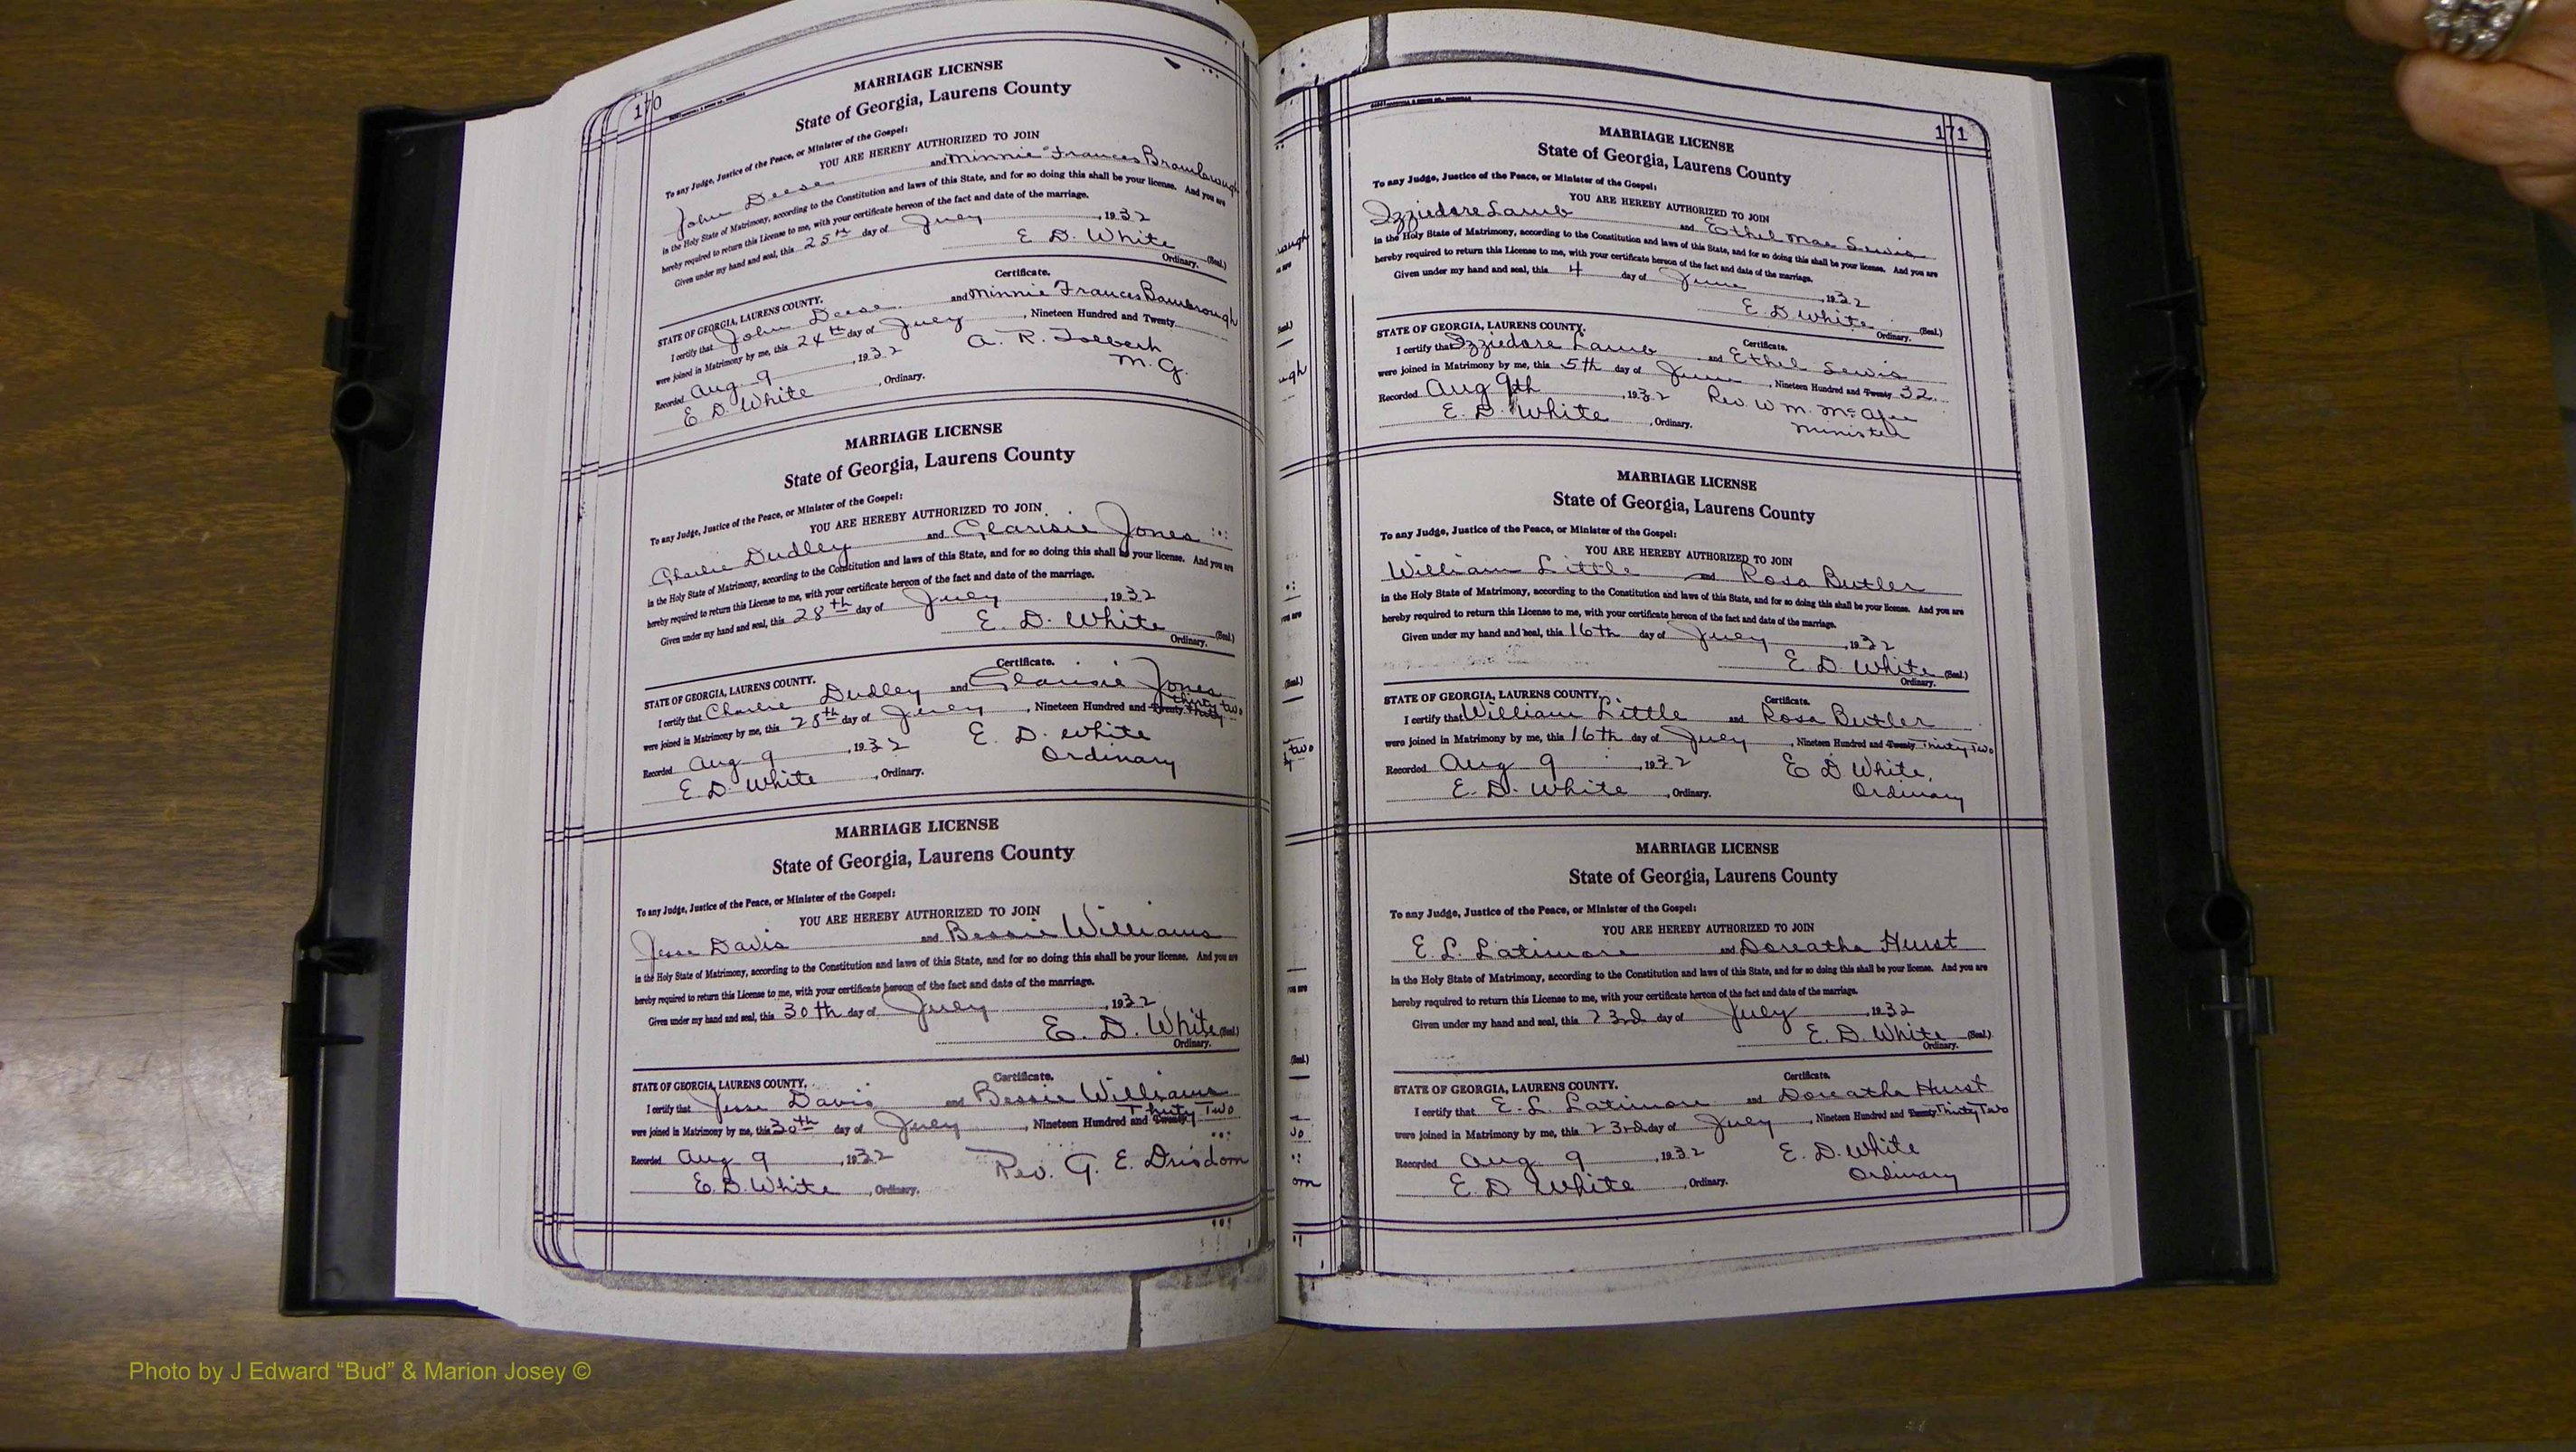 170
MARRIAGE LICENSE
State of Georgia, Laurens County
To any Judge, Justice of the Peace, or Minister of the Gospel:
YOU ARE HEREBY AUTHORIZED TO JOIN
John Deese and Minnie Frances
in the Holy State of Matrimony, according to the Constitution and laws of this State, and for so doing this shall be your license. And you are
hereby required to return this License to me, with your certificate hereon of the fact and date of the marriage.
Given under my hand and seal, this 25th day of July, 1932
E. D. White (Seal.)
Ordinary.
Certificate.
STATE OF GEORGIA, LAURENS COUNTY.
I certify that John Deese and Minnie Frances Bambrough
were joined in Matrimony by me, this 24th day of July, Nineteen Hundred and Twenty
Recorded Aug 9, 1932 A. R. Tolbert
E. D. White, Ordinary. M. G.
MARRIAGE LICENSE
State of Georgia, Laurens County
To any Judge, Justice of the Peace, or Minister of the Gospel:
YOU ARE HEREBY AUTHORIZED TO JOIN
Charlie Dudley and Clarisie Jones
in the Holy State of Matrimony, according to the Constitution and laws of this State, and for so doing this shall be your license. And you are
hereby required to return this License to me, with your certificate hereon of the fact and date of the marriage.
Given under my hand and seal, this 28th day of July, 1932
E. D. White (Seal.)
Ordinary.
Certificate.
STATE OF GEORGIA, LAURENS COUNTY.
I certify that Charlie Dudley and Clarisie Jones
thirty two
were joined in Matrimony by me, this 28th day of July, Nineteen Hundred and Twenty Thirty
Recorded Aug 9, 1932 E. D. White
E. D. White, Ordinary. Ordinary
MARRIAGE LICENSE
State of Georgia, Laurens County
To any Judge, Justice of the Peace, or Minister of the Gospel:
YOU ARE HEREBY AUTHORIZED TO JOIN
Jesse Davis and Bessie Williams
in the Holy State of Matrimony, according to the Constitution and laws of this State, and for so doing this shall be your license. And you are
hereby required to return this License to me, with your certificate hereon of the fact and date of the marriage.
Given under my hand and seal, this 30th day of July, 1932
E. D. White (Seal.)
Ordinary.
Certificate.
STATE OF GEORGIA, LAURENS COUNTY.
I certify that Jesse Davis and Bessie Williams
Thirty Two
were joined in Matrimony by me, this 30th day of July, Nineteen Hundred and Twenty
Recorded Aug 9, 1932 Rev. G. E. Drisdom
E. D. White, Ordinary.
171
MARRIAGE LICENSE
State of Georgia, Laurens County
To any Judge, Justice of the Peace, or Minister of the Gospel:
YOU ARE HEREBY AUTHORIZED TO JOIN
Izziedore Lamb and Ethel Mae Lewis
in the Holy State of Matrimony, according to the Constitution and laws of this State, and for so doing this shall be your license. And you are
hereby required to return this License to me, with your certificate hereon of the fact and date of the marriage.
Given under my hand and seal, this 4 day of June, 1932
E. D White (Seal.)
Ordinary.
Certificate.
STATE OF GEORGIA, LAURENS COUNTY.
I certify that Izziedore Lamb and Ethel Lewis
were joined in Matrimony by me, this 5th day of June, Nineteen Hundred and Twenty 32
Recorded Aug 9th, 1932 Rev. W M. McAfee
E. D. White, Ordinary. Minister
MARRIAGE LICENSE
State of Georgia, Laurens County
To any Judge, Justice of the Peace, or Minister of the Gospel:
YOU ARE HEREBY AUTHORIZED TO JOIN
William Little and Rosa Butler
in the Holy State of Matrimony, according to the Constitution and laws of this State, and for so doing this shall be your license. And you are
hereby required to return this License to me, with your certificate hereon of the fact and date of the marriage.
Given under my hand and seal, this 16th day of July, 1932
E. D. White (Seal.)
Ordinary.
Certificate.
STATE OF GEORGIA, LAURENS COUNTY.
I certify that William Little and Rosa Butler
were joined in Matrimony by me, this 16th day of July, Nineteen Hundred and Twenty Thirty Two
Recorded Aug 9, 1932 E D White,
E. D. White, Ordinary. Ordinary
MARRIAGE LICENSE
State of Georgia, Laurens County
To any Judge, Justice of the Peace, or Minister of the Gospel:
YOU ARE HEREBY AUTHORIZED TO JOIN
E. L. Latimore and Doreatha Hurst
in the Holy State of Matrimony, according to the Constitution and laws of this State, and for so doing this shall be your license. And you are
hereby required to return this License to me, with your certificate hereon of the fact and date of the marriage.
Given under my hand and seal, this 23rd day of July, 1932
E. D. White (Seal.)
Ordinary.
Certificate.
STATE OF GEORGIA, LAURENS COUNTY.
I certify that E. L. Latimore and Doreatha Hurst
were joined in Matrimony by me, this 23rd day of July, Nineteen Hundred and Twenty Thirty Two
Recorded Aug 9, 1932 E. D. White
E. D White, Ordinary. Ordinary
Photo by J Edward “Bud” & Marion Josey ©